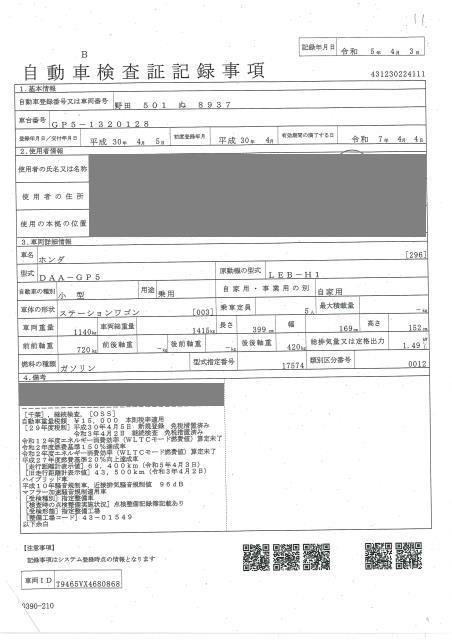 11
B
記録年月日 令和 5年 4月 3日
自動車検査証記録事項
431230224111
1.基本情報
自動車登録番号又は車両番号 野田 501 ぬ 8937
車台番号 GP5-1320128
登録年月日/交付年月日 平成 30年 4月 5日 初度登録年月 平成 30年 4月 有効期間の満了する日 令和 7年 4月 4日
2.使用者情報
使用者の氏名又は名称
使用者の住所
使用の本拠の位置
3.車両詳細情報
車名 ホンダ [296]
型式 DAA-GP5 原動機の型式 LEB-H1
自動車の種別 小型 用途 乗用 自家用・事業用の別 自家用
車体の形状 ステーションワゴン [003] 乗車定員 5人 最大積載量 -kg
車両重量 1140kg 車両総重量 1415kg 長さ 399cm 幅 169cm 高さ 152cm
前前軸重 720kg 前後軸重 -kg 後前軸重 -kg 後後軸重 420kg 総排気量又は定格出力 1.49
燃料の種類 ガソリン 型式指定番号 17574 類別区分番号 0012
4.備考
[千葉],継続検査,[OSS]
自動車重量税額 ¥15,000 本則税率適用
[29年度税制]平成30年4月5日 新規登録 免税措置済み
令和3年4月2日 継続検査 免税措置済み
令和12年度エネルギー消費効率(WLTCモード燃費値)算定未了
令和2年度燃費基準150%達成車
令和2年度エネルギー消費効率(WLTCモード燃費値)算定未了
平成27年度燃費基準20%向上達成車
[走行距離計表示値]69,400km(令和5年4月3日)
[旧走行距離計表示値]43,500km(令和3年4月2日)
ハイブリッド車
平成10年騒音規制車,近接排気騒音規制値 96dB
マフラー加速騒音規制適用車
[受検種別]指定整備車
[検査時の点検整備実施状況]点検整備記録簿記載あり
[受検形態]指定整備工場
[整備工場コード]43-01549
以下余白
[注意事項]
記録事項はシステム登録時点の情報となります
車両ID 79465VX4680868
0390-210